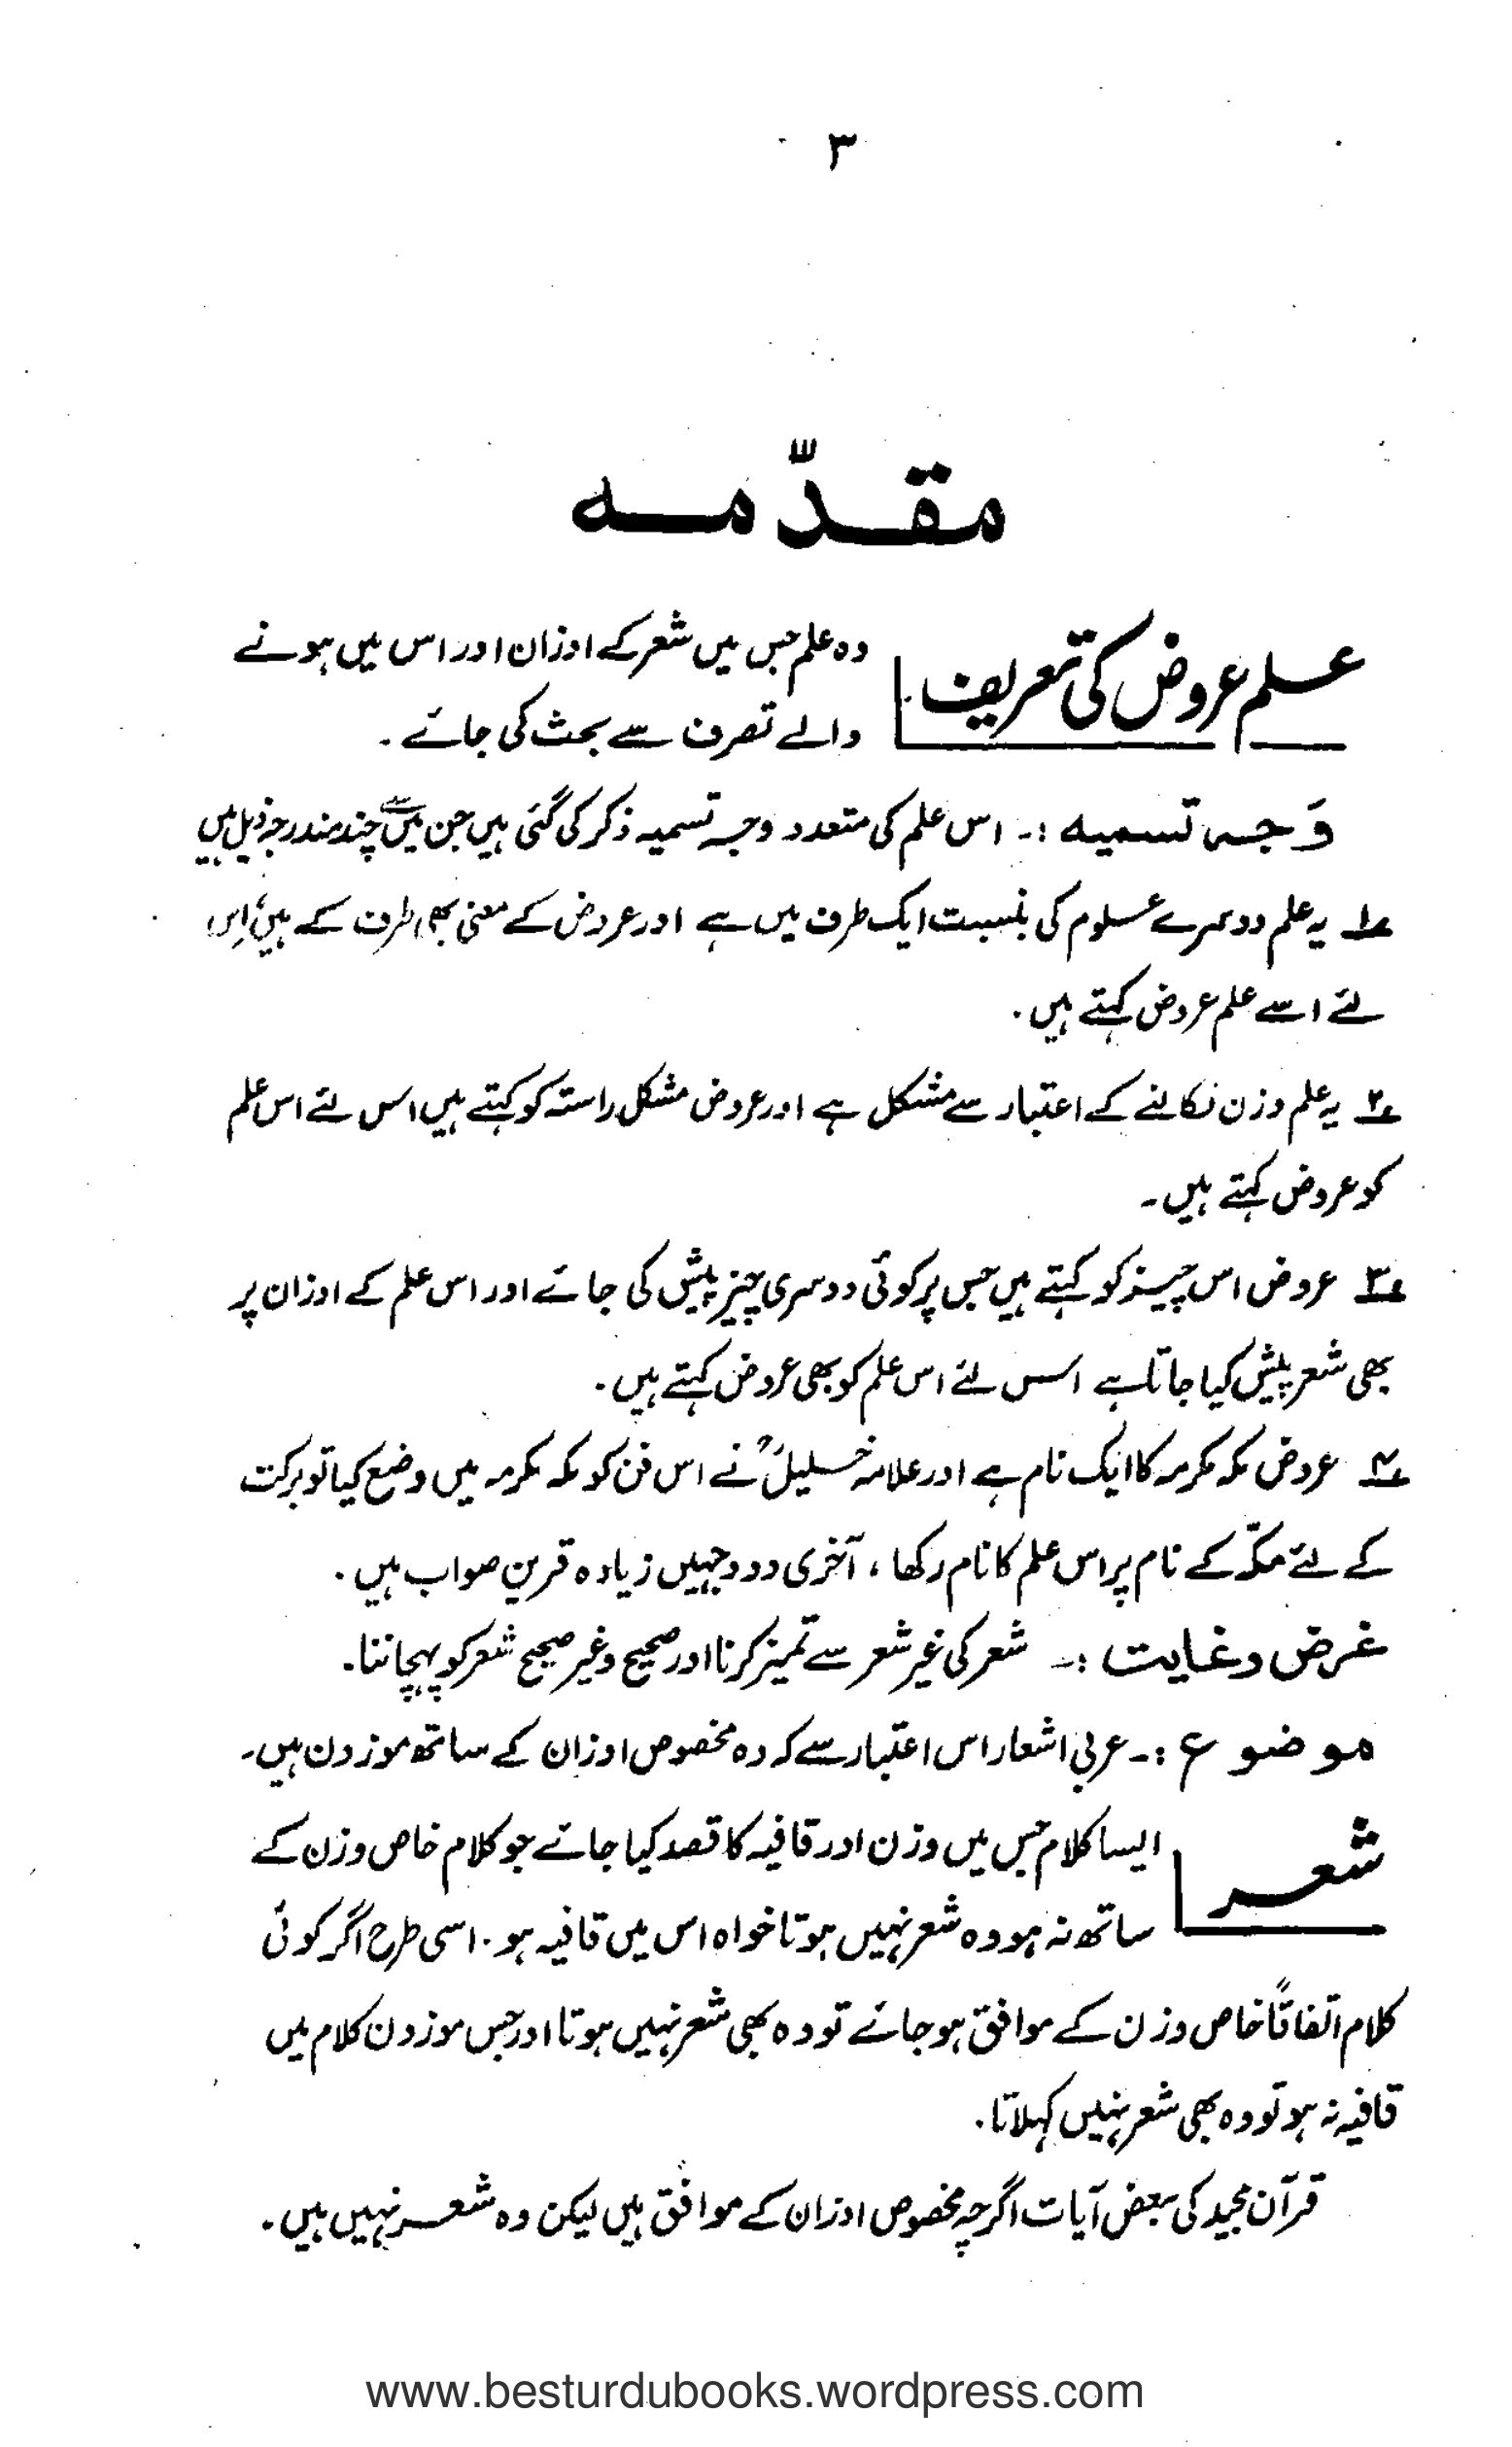 ۳
مقدّمہ
علم عروض کی تعریف
وہ علم جس میں شعر کے اوزان اور اس میں ہونے
والے تصرف سے بحث کی جائے۔
وَجہ تسمیہ :۔ اس علم کی متعدد وجہ تسمیہ ذکر کی گئی ہیں جن میں سے چند مندرجہ ذیل ہیں
۱؎ یہ علم دوسرے علوم کی بنسبت ایک طرف میں ہے اور عروض کے معنی بھی طرف کے ہیں، اِس
لئے اسے علم عروض کہتے ہیں۔
۲؎ یہ علم وزن نکالنے کے اعتبار سے مشکل ہے اور عروض مشکل راستہ کو کہتے ہیں اس لئے اس علم
کو عروض کہتے ہیں۔
۳؎ عروض اس چیز کو کہتے ہیں جس پر کوئی دوسری چیز پیش کی جائے اور اس علم کے اوزان پر
بھی شعر پیش کیا جاتا ہے اس لئے اس علم کو بھی عروض کہتے ہیں۔
۴؎ عروض مکہ مکرمہ کا ایک نام ہے اور علامہ خلیلؒ نے اس فن کو مکہ مکرمہ میں وضع کیا تو برکت
کے لئے مکہّ کے نام پر اس علم کا نام رکھا، آخری دو وجہیں زیادہ قرینِ صواب ہیں۔
غرض و غایت :۔ شعر کی غیر شعر سے تمیز کرنا اور صحیح و غیر صحیح شعر کو پہچاننا۔
موضوع :۔ عربی اشعار اس اعتبار سے کہ وہ مخصوص اوزان کے ساتھ موزون ہیں۔
شعر
ایسا کلام جس میں وزن اور قافیہ کا قصد کیا جائے جو کلام خاص وزن کے
ساتھ نہ ہو وہ شعر نہیں ہوتا خواہ اس میں قافیہ ہو۔ اسی طرح اگر کوئی
کلام اتفاقاً خاص وزن کے موافق ہو جائے تو وہ بھی شعر نہیں ہوتا اور جس موزون کلام میں
قافیہ نہ ہو تو وہ بھی شعر نہیں کہلاتا۔
قرآن مجید کی بعض آیات اگرچہ مخصوص اوزان کے موافق ہیں لیکن وہ شعر نہیں ہیں۔
www.besturdubooks.wordpress.com